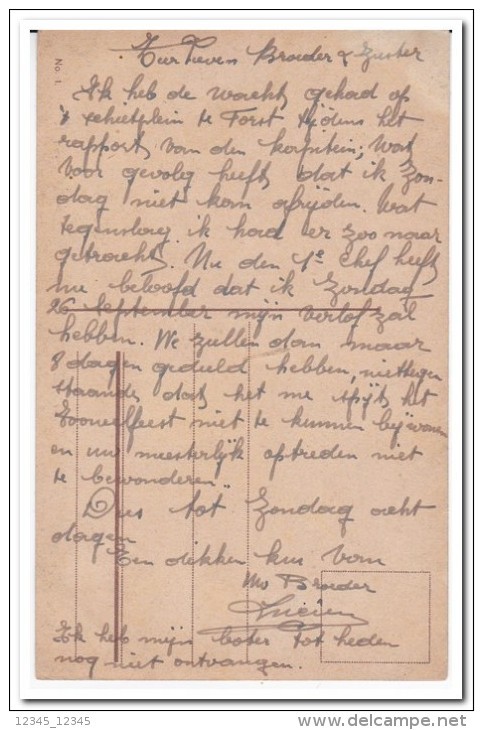 Zeer lieven Broeder & Zuster
Ik heb de wacht gehad op
't schietplein te Forst tijdens het
rapport van den kapitein; wat
voor gevolg heeft dat ik Zon-
dag niet kan afrijden. Wat
tegenslag ik had er zoo naar
getracht. Nu den 1e Chef heeft
me beloofd dat ik Zondag
26 September mijn verlof zal
hebben. We zullen dan maar
8 dagen geduld hebben, niettegen
staande dat het me spijt het
Tooneelfeest niet te kunnen bijwonen
en uw meesterlijk optreden niet
te bewonderen"
Dus tot Zondag acht
dagen
Een dikken kus van
Uw Broeder
Lucien
Ik heb mijn boter tot heden
nog niet ontvangen.
No 1.
12345_12345
http://www.delcampe.net